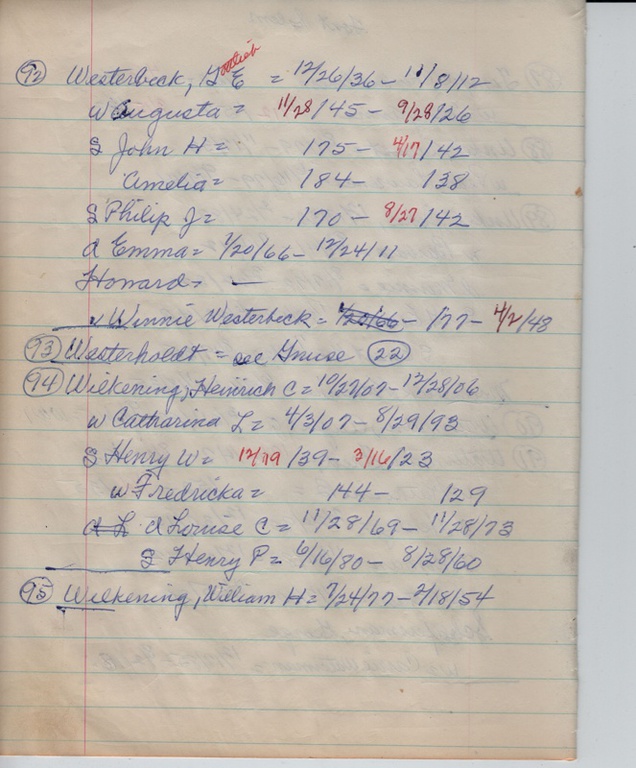 92 Westerbeck, G ottlieb E = 12/26/36 - 11/8/12
w Augusta = 11/28/45 - 9/28/26
S John H = 175 - 4/17/42
Amelia = 184 - 138
S Philip J = 170 - 8/27/42
d Emma = 7/20/66 - 12/24/11
Howard = —
w Winnie Westerbeck = 7/20/66 - /77 - 4/2/48
93 Westerholdt = see Gnuse 22
94 Wilkening, Heinrich C = 10/27/07 - 12/28/06
w Catharina L = 4/3/07 - 8/29/93
S Henry W = 12/19/39 - 3/16/23
w Fredricka = 144 - 129
d L d Louise C = 11/28/69 - 11/28/73
S Henry P = 6/16/80 - 8/28/60
95 Wilkening, William H = 7/24/77 - 2/18/54